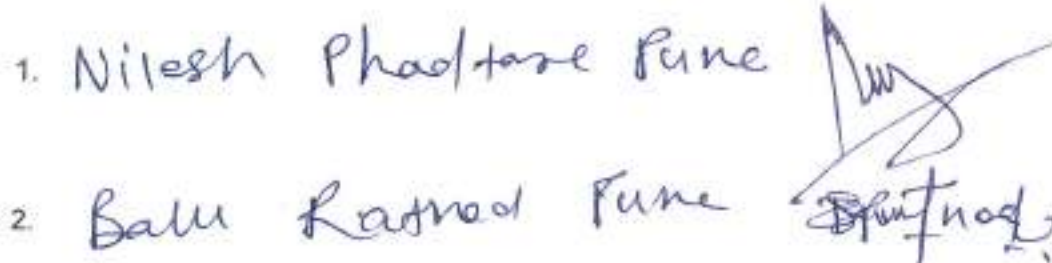 1. Nilesh Phadtare Pune
2. Balu Rathod Pune